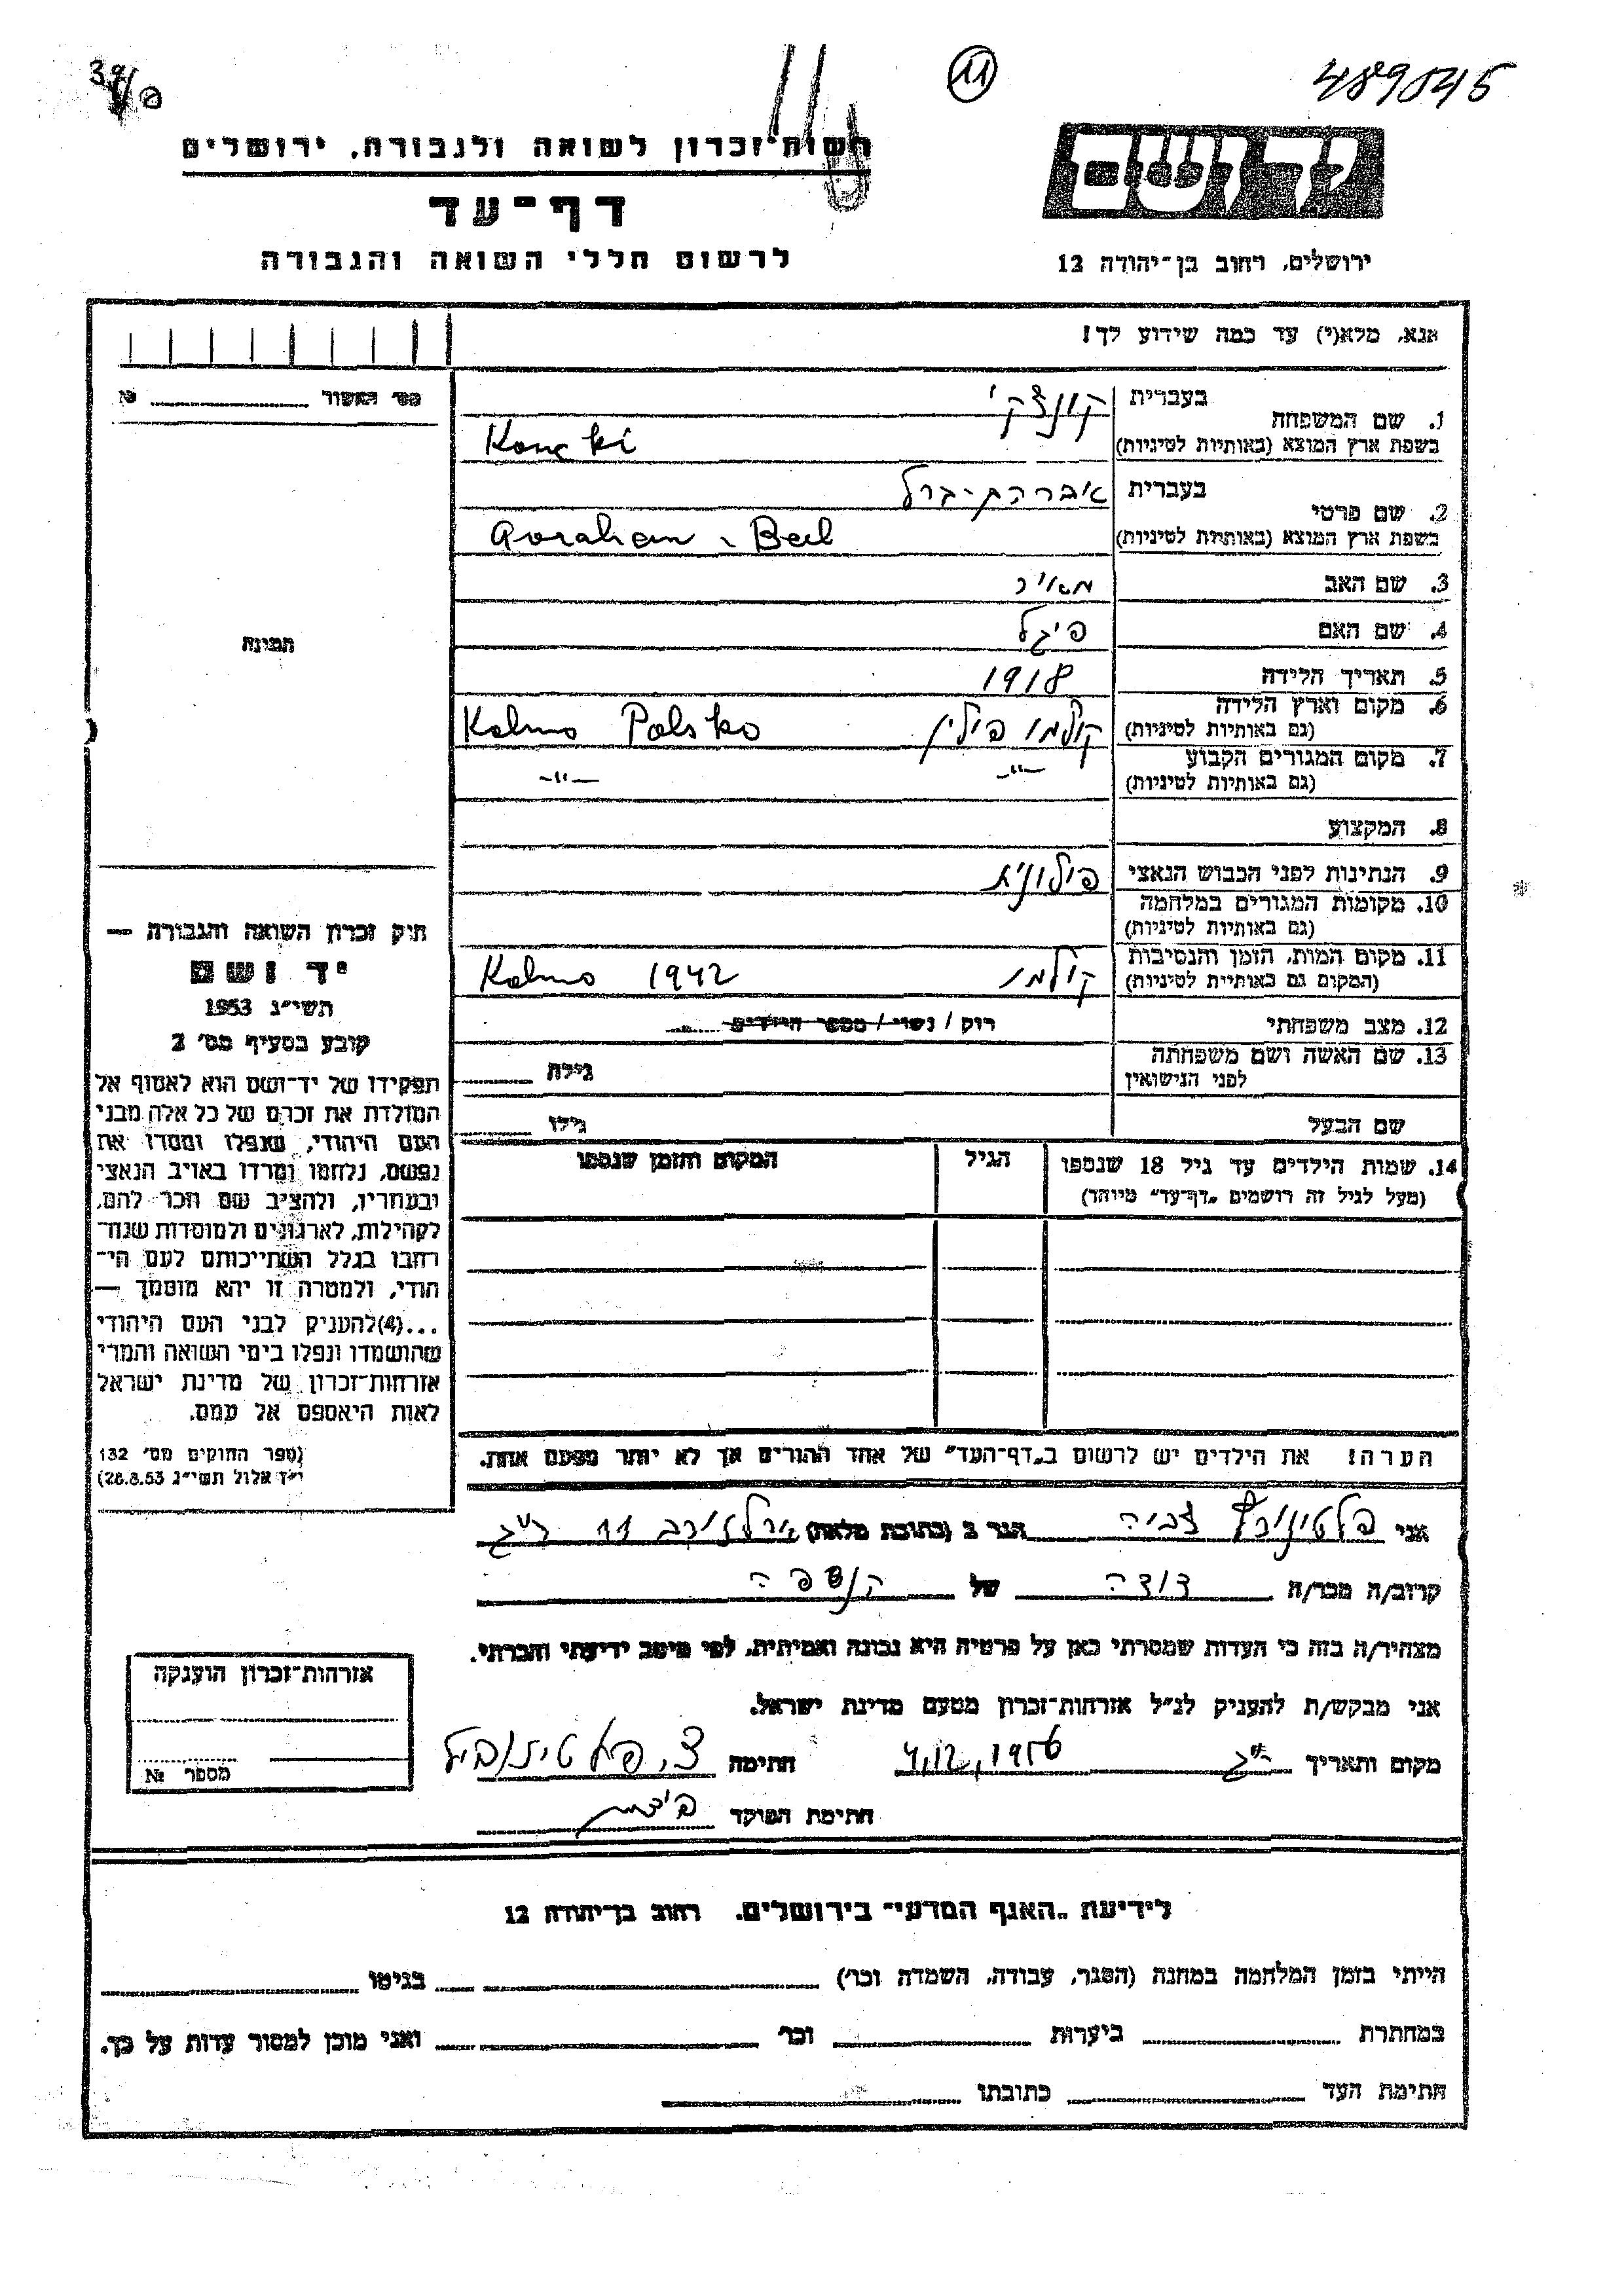 489045
11
רשות־זכרון לשואה ולגבורה, ירושלים
דף־עד
לרשום חללי השואה והגבורה
יד ושם
ירושלים, רחוב בן־יהודה 12
אנא, מלא(י) עד כמה שידוע לך!
מס׳ האשור № 
1. שם המשפחה בעברית קונצקי
בשפת ארץ המוצא (באותיות לטיניות) Koncki
2. שם פרטי בעברית אברהם-ברל
בשפת ארץ המוצא (באותיות לטיניות) Avraham - Berl
3. שם האב מאיר
4. שם האם פיגל
5. תאריך הלידה 1918
6. מקום וארץ הלידה קולמו פולין Kolmo Polsko
(גם באותיות לטיניות)
7. מקום המגורים הקבוע -"- -"-
(גם באותיות לטיניות)
8. המקצוע
9. הנתינות לפני הכבוש הנאצי פולונית
10. מקומות המגורים במלחמה
(גם באותיות לטיניות)
11. מקום המות, הזמן והנסיבות קולמו 1942 Kolmo
(המקום גם באותיית לטיניות)
12. מצב משפחתי רוק / נשוי / מספר הילדים
13. שם האשה ושם משפחתה גילה
לפני הנישואין
שם הבעל גילו
14. שמות הילדים עד גיל 18 שנספו הגיל המקום והזמן שנספו
(מעל לגיל זה רושמים „דף־עד” מיוחד)
הערה! את הילדים יש לרשום ב„דף־העד” של אחד ההורים אך לא יותר מפעם אחת.
תמונה
חוק זכרון השואה והגבורה —
יד ושם
תשי״ג 1953
קובע בסעיף מס׳ 2
תפקידו של יד־ושם הוא לאסוף אל
המולדת את זכרם של כל אלה מבני
העם היהודי, שנפלו ומסרו את
נפשם, נלחמו ומרדו באויב הנאצי
ובעוזריו, ולהציב שם וזכר להם,
לקהילות, לארגונים ולמוסדות שנח־
רבו בגלל השתייכותם לעם הי־
הודי, ולמטרה זו יהא מוסמך —
...(4)להעניק לבני העם היהודי
שהושמדו ונפלו בימי השואה והמרי
אזרחות־זכרון של מדינת ישראל
לאות היאספם אל עמם.
(ספר החוקים מס׳ 132
י״ז אלול תשי״ג 28.8.53)
אני צביה הגר ב (כתובת מלאה) ארלוזורוב 11 ר"ג
קרוב/ה מכר/ה דודה של הנספה
מצהיר/ה בזה כי העדות שמסרתי כאן על פרטיה היא נכונה ואמיתית, לפי מיטב ידיעתי והכרתי.
אני מבקש/ת להעניק לנ״ל אזרחות־זכרון מטעם מדינת ישראל.
מקום ותאריך ר"ג 4.12.1956 חתימה צ.
חתימת הפוקד
אזרחות־זכרון הוענקה
מספר №
לידיעת „האגף המדעי” בירושלים. רחוב בן־יהודה 12
הייתי בזמן המלחמה במחנה (הסגר, עבודה, השמדה וכר׳) בגיטו
במחתרת ביערות וכר׳ ואני מוכן למסור עדות על כך.
חתימת העד כתובתו